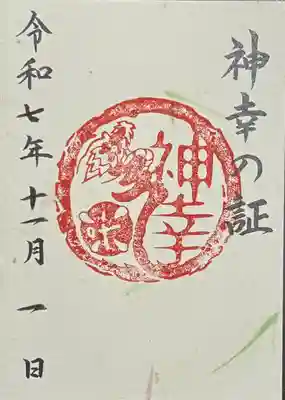 神幸の証
神幸
令和七年十一月一日